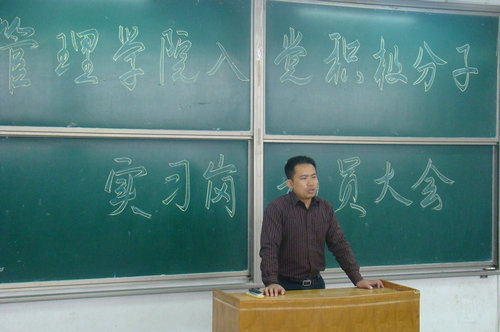 管理学院入党积极分子
实习岗 员大会